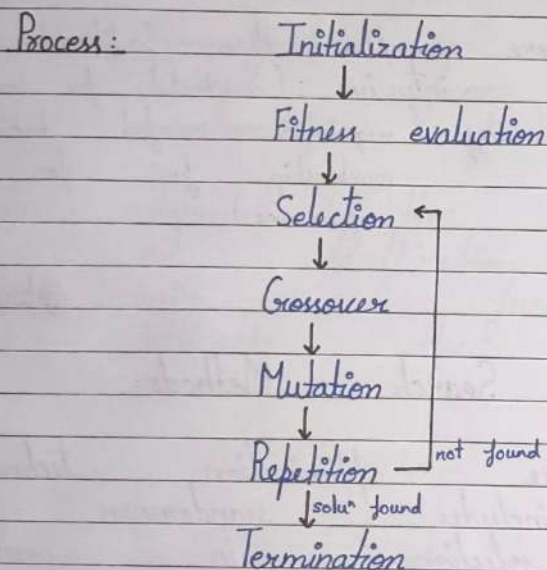 Process:- Initialization
Fitness evaluation
Selection
Crossover
Mutation
Repetition
not found
soluⁿ found
Termination